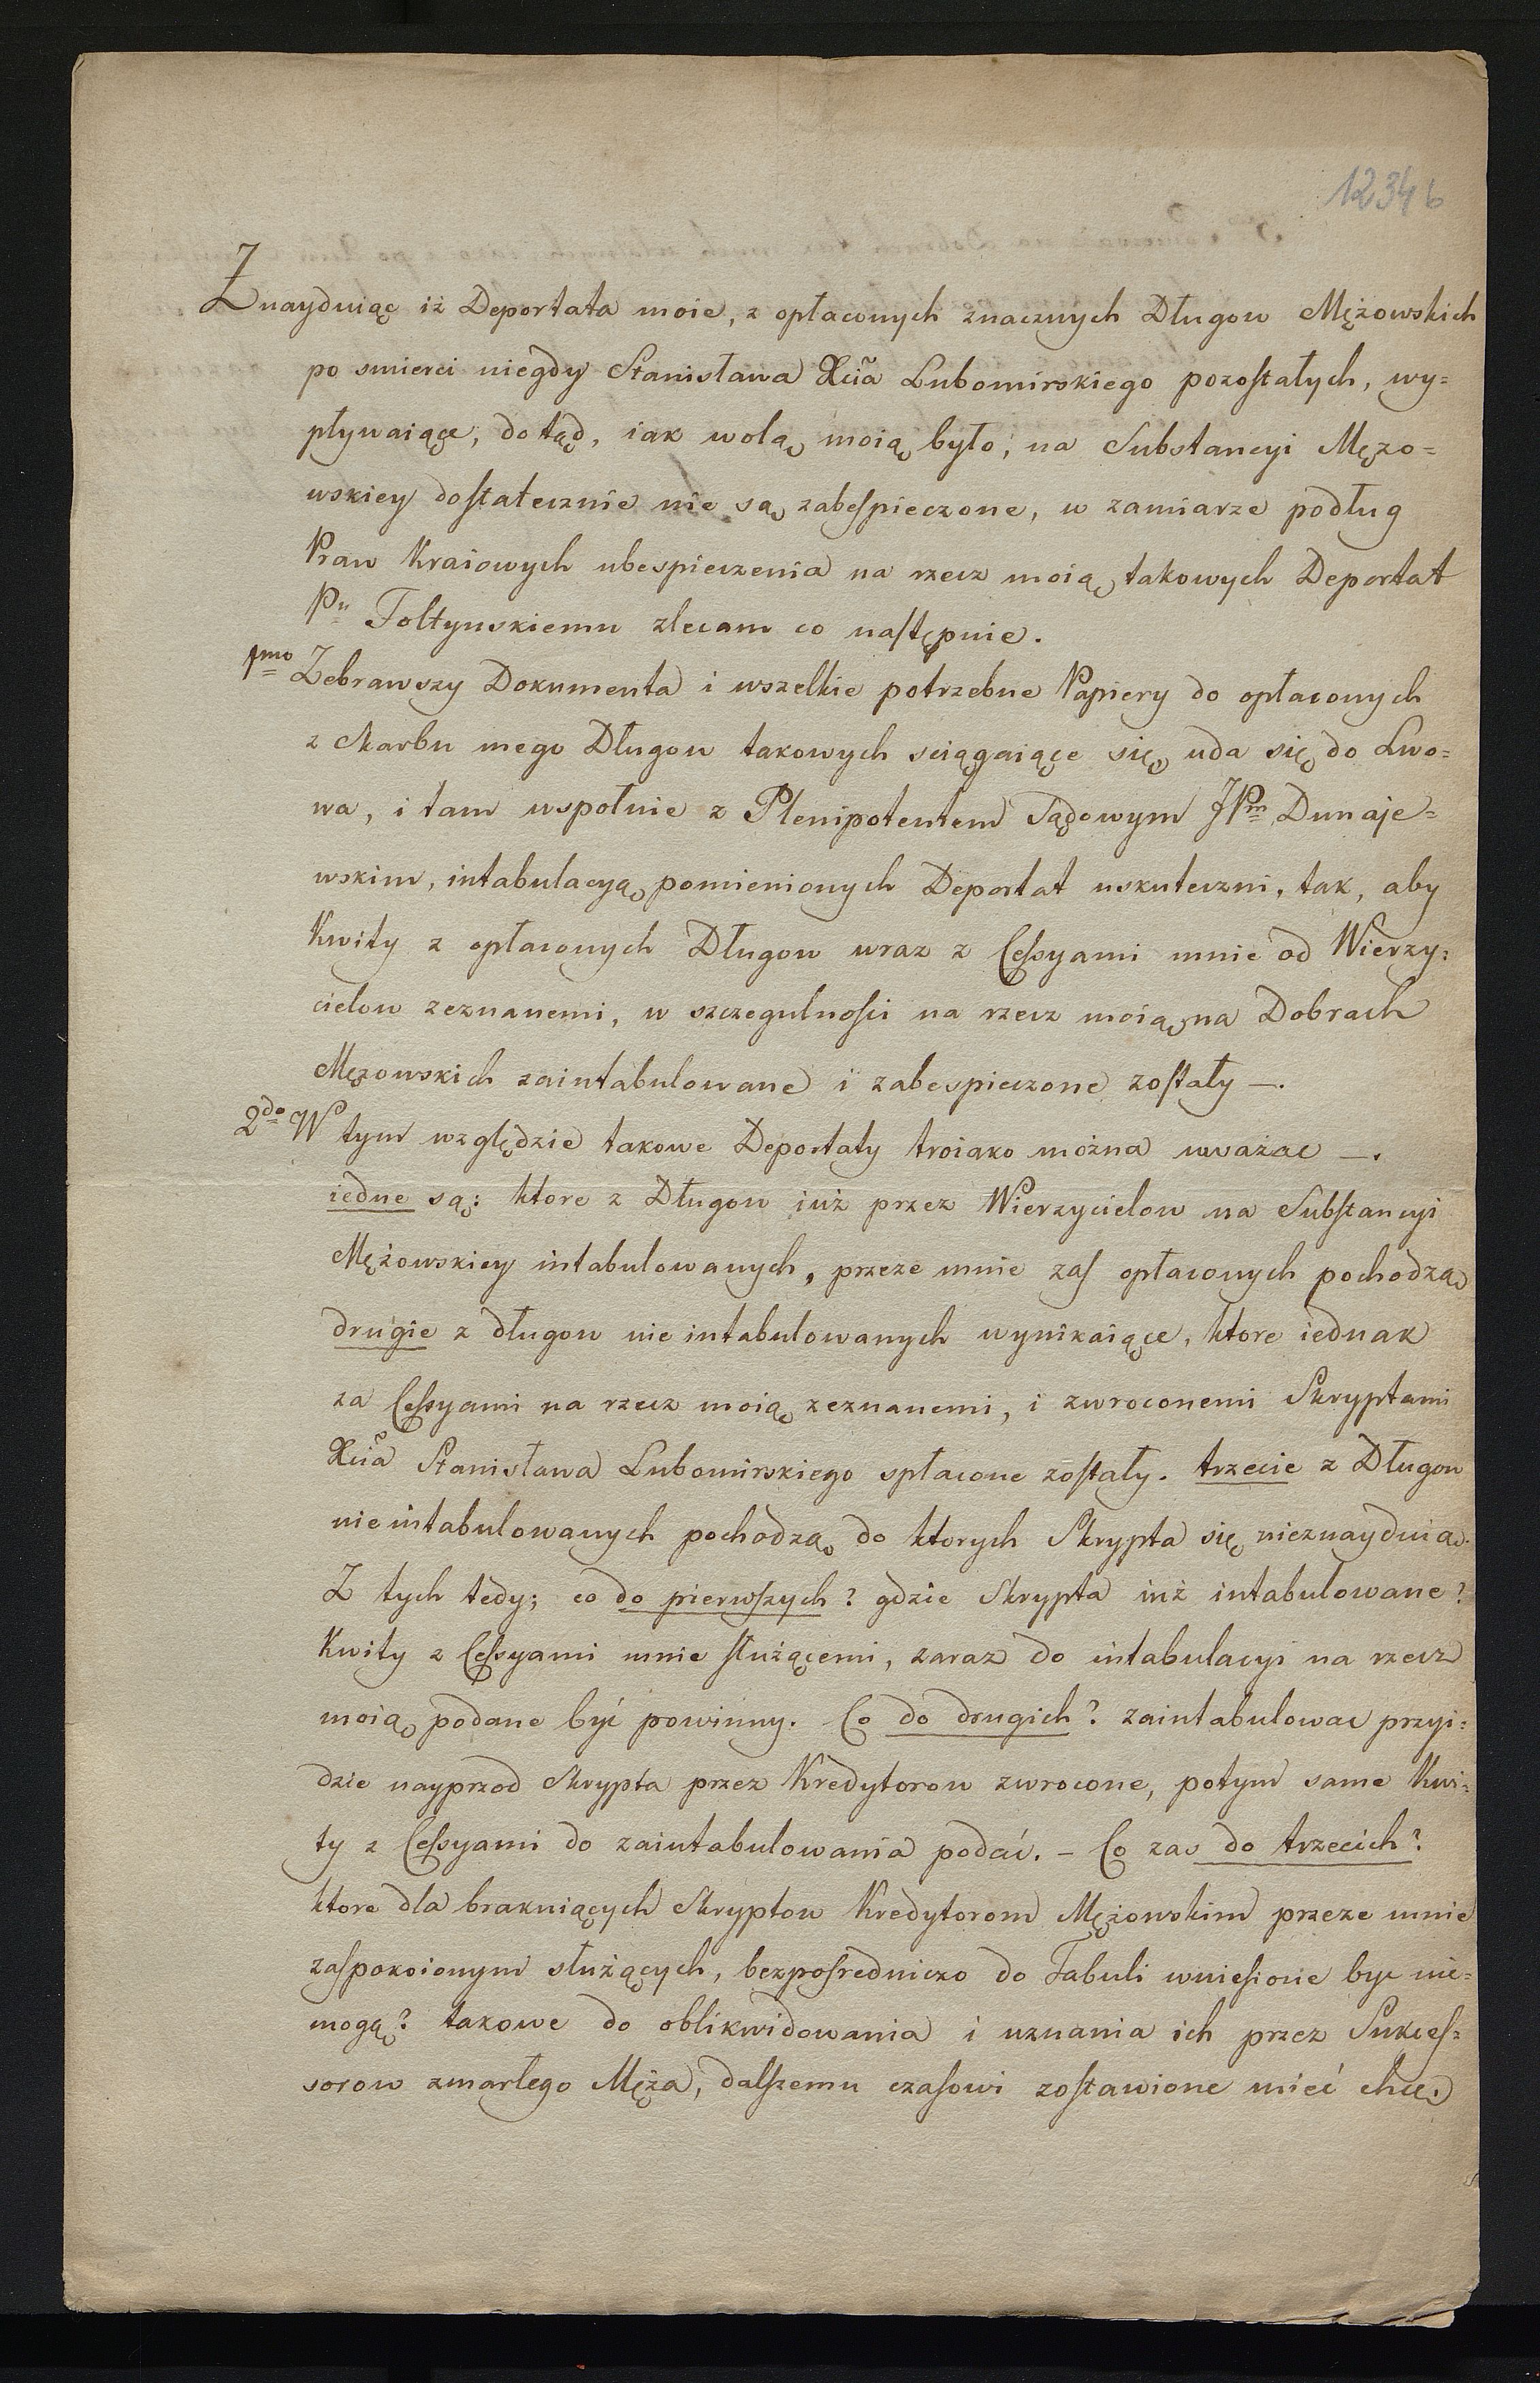 12346
Znayduiąc iż Deportata moie, z opłaconych znacznych Długow Mężowskich
po smierci niegdy Stanisława Xcia Lubomirskiego pozostałych, wy=
pływaiące, dotąd, iak wolą moią było, na Substancyi Męzo=
wskiey dostatecznie nie są zabespieczone, w zamiarze podług
Praw Kraiowych ubespieczenia na rzecz moią takowych Deportat
Pu Tołtynskiemu zlecam co następuie.
1mo Zebrawszy Dokumenta i wszelkie potrzebne Papiery do opłaconych
z Skarbu mego Długow takowych sciągaiące się, uda się do Lwo=
wa, i tam wspołnie z Plenipotentem Sądowym JPm Dunaje=
wskim, intabulacyą pomienionych Deportat uskuteczni, tak, aby
Kwity z opłaconych Długow wraz z Cessyami mnie od Wierzy=
cielow zeznanemi, w szczegulności na rzecz moią na Dobrach
Męzowskich zaintabulowane i zabespieczone zostały —.
2do W tym względzie takowe Deportaty troiako można uważac —.
iedne są: ktore z Długow iuż przez Wierzycielow na Substancyi
Mężowskiey intabulowanych, przeze mnie zas opłaconych pochodzą
drugie z długow nie intabulowanych wynikaiące, ktore iednak
za Cessyami na rzecz moią zeznanemi, i zwroconemi Skryptami
Xcia Stanisława Lubomirskiego spłacone zostały. trzecie z Długow
nie intabulowanych pochodzą do ktorych Skrypta się nieznayduią.
Z tych tedy; co do pierwszych? gdzie Skrypta iuż intabulowane?
Kwity z Cessyami mnie służącemi, zaraz do intabulacyi na rzecz
moią podane być powinny. Co do drugich? zaintabulowac przyi=
dzie nayprzod Skrypta przez Kredytorow zwrocone, potym same Kwi=
ty z Cessyami do zaintabulowania podać. – Co zas do trzecich?
ktore dla brakuiących Skryptow Kredytorom Mężowskim przeze mnie
zaspokoionym służących, bezposredniczo do Tabuli wniesione byc nie=
mogą? takowe do oblikwidowania i uznania ich przez Sukces=
sorow zmarłego Męża, dalszemu czasowi zostawione mieć chcę.